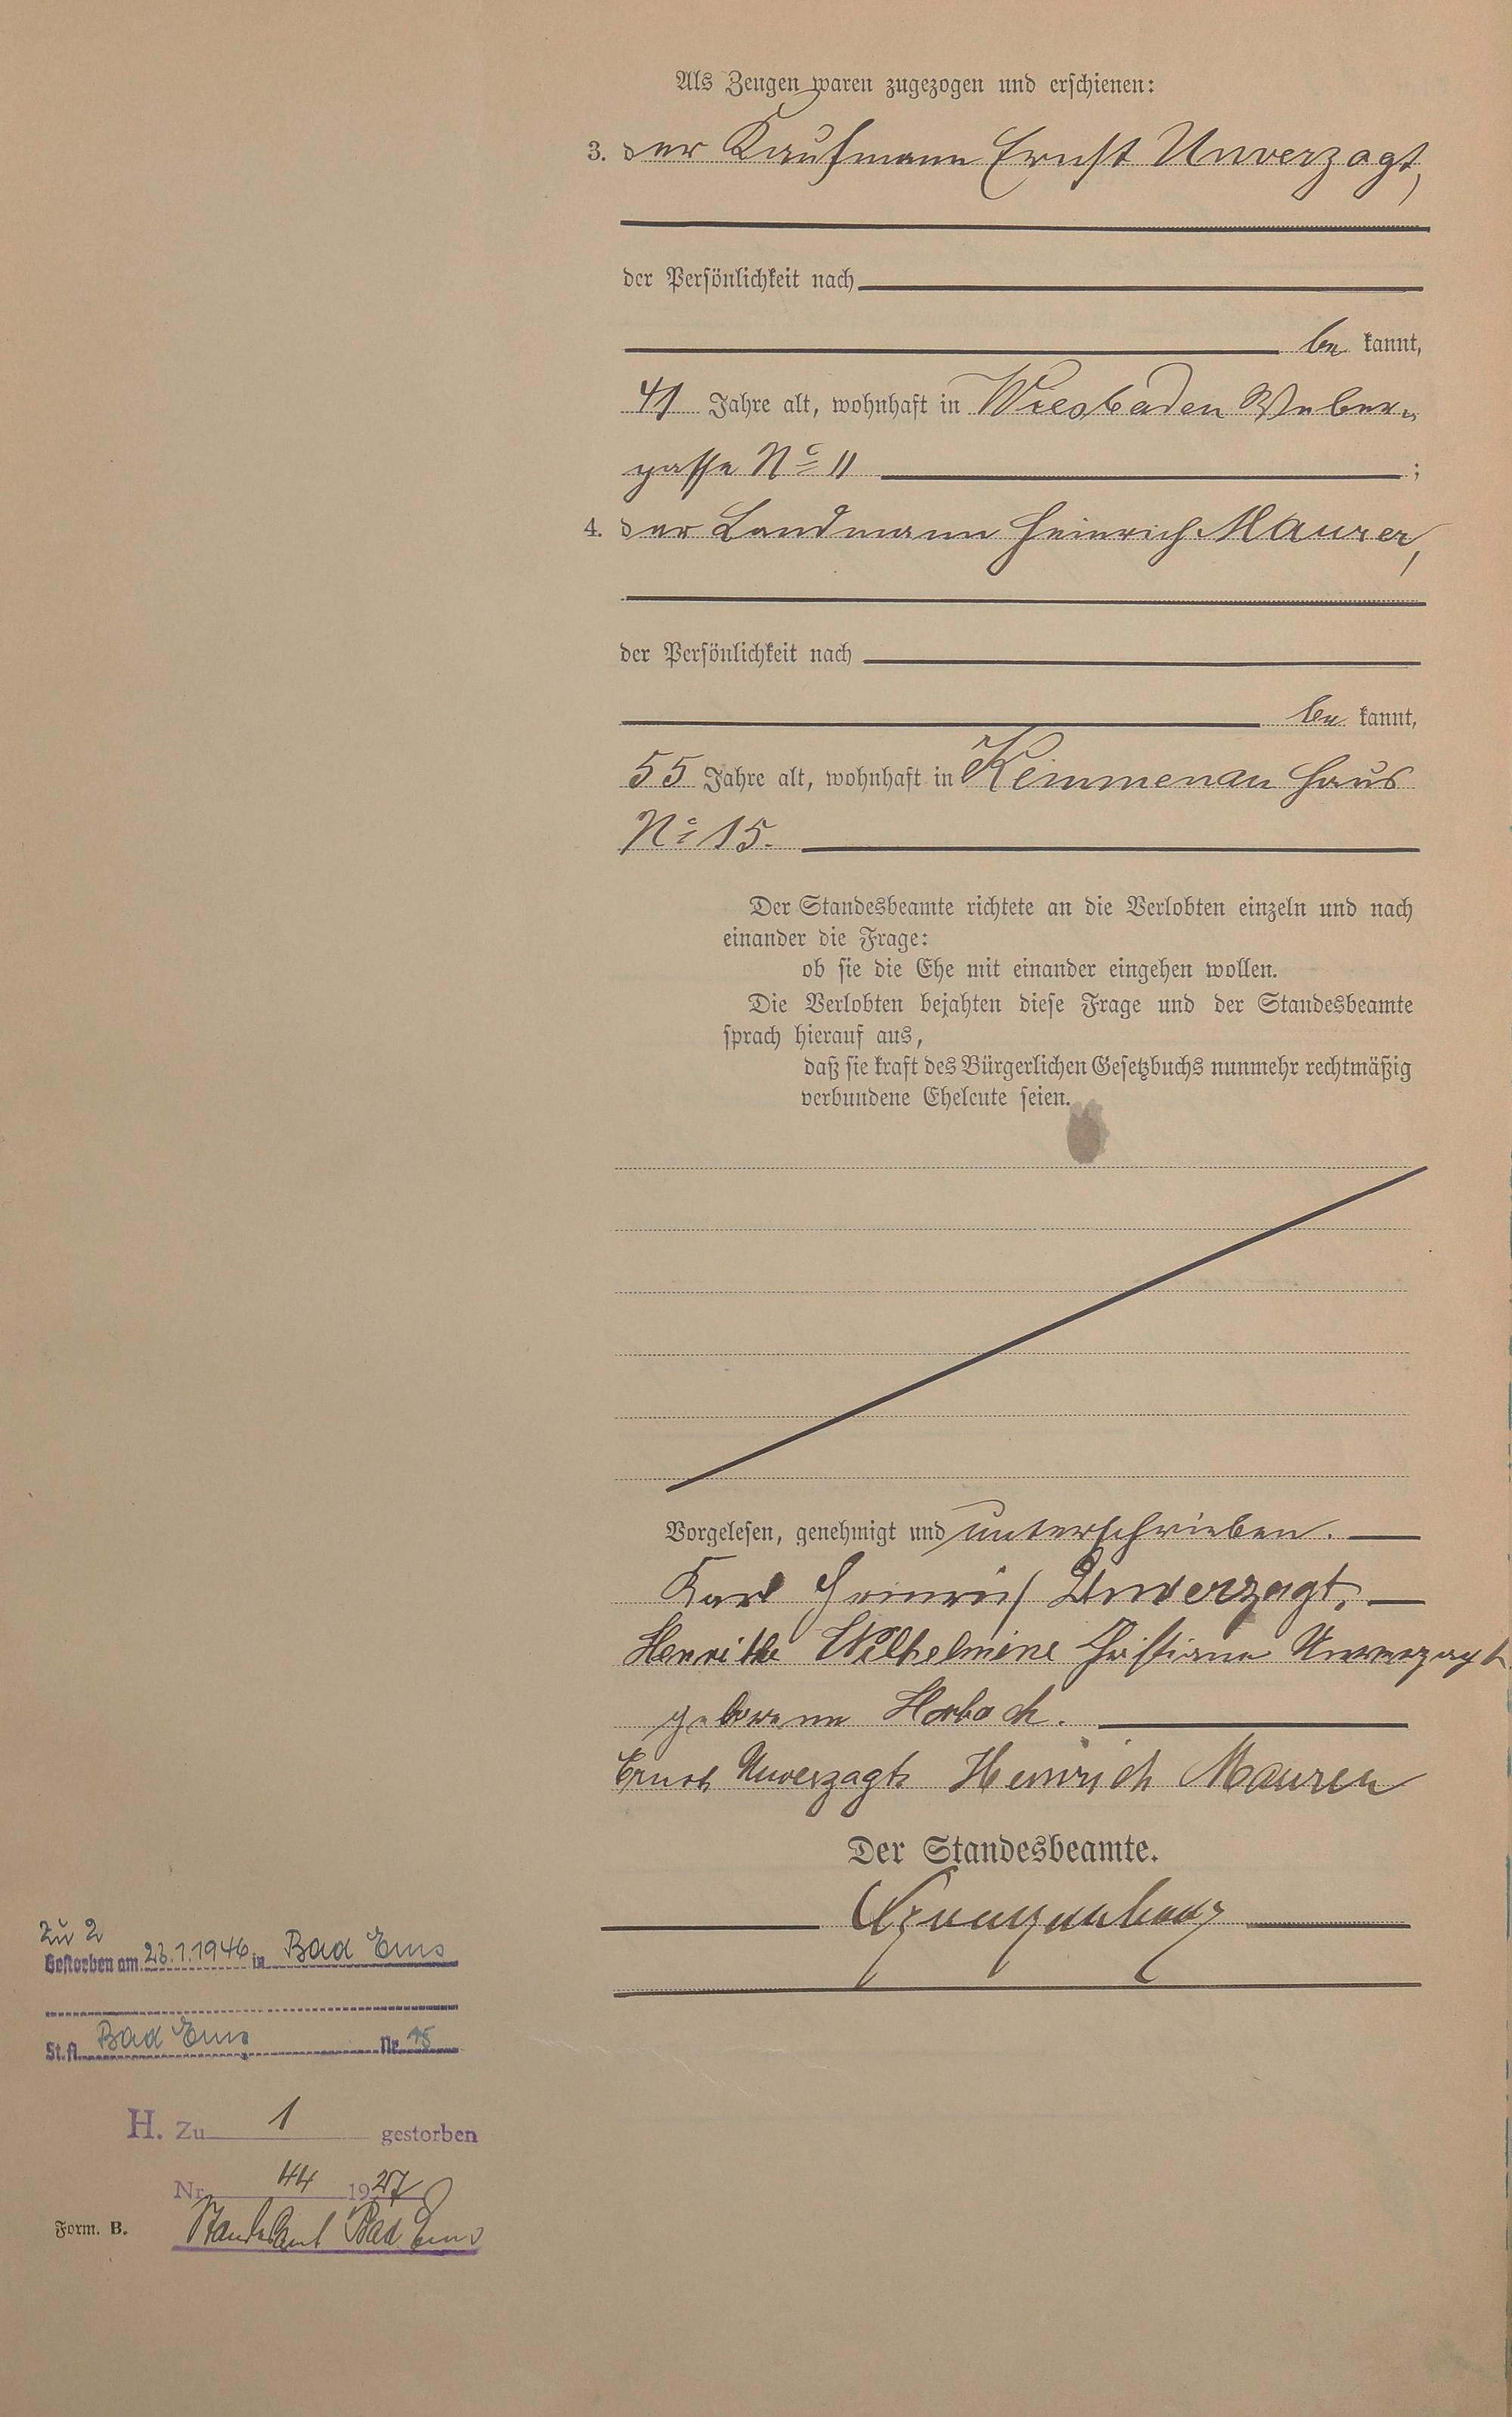 Als Zeugen waren zugezogen und erschienen:
3. der Kaufmann Ernst Unverzagt,
der Persönlichkeit nach
be kannt,
41 Jahre alt, wohnhaft in Wiesbaden Weber-
gasse No 11 ;
4. der Landmann Heinrich Maurer,
der Persönlichkeit nach
be kannt,
55 Jahre alt, wohnhaft in Kemmenau Haus
No 15.
Der Standesbeamte richtete an die Verlobten einzeln und nach
einander die Frage:
ob sie die Ehe mit einander eingehen wollen.
Die Verlobten bejahten diese Frage und der Standesbeamte
sprach hierauf aus,
daß sie kraft des Bürgerlichen Gesetzbuchs nunmehr rechtmäßig
verbundene Eheleute seien.
Vorgelesen, genehmigt und unterschrieben.
Karl Heinrich Unverzagt.
Henriette Wilhelmine Christiane Unverzagt
geborene Horbach.
Ernst Unverzagt Heinrich Maurer
Der Standesbeamte.
Zu 2
Gestorben am 23.1.1946 in Bad Ems
St.A. Bad Ems Nr. 15
H. Zu 1 gestorben
Nr. 44 1927
Standesamt Bad Ems
Form. B.